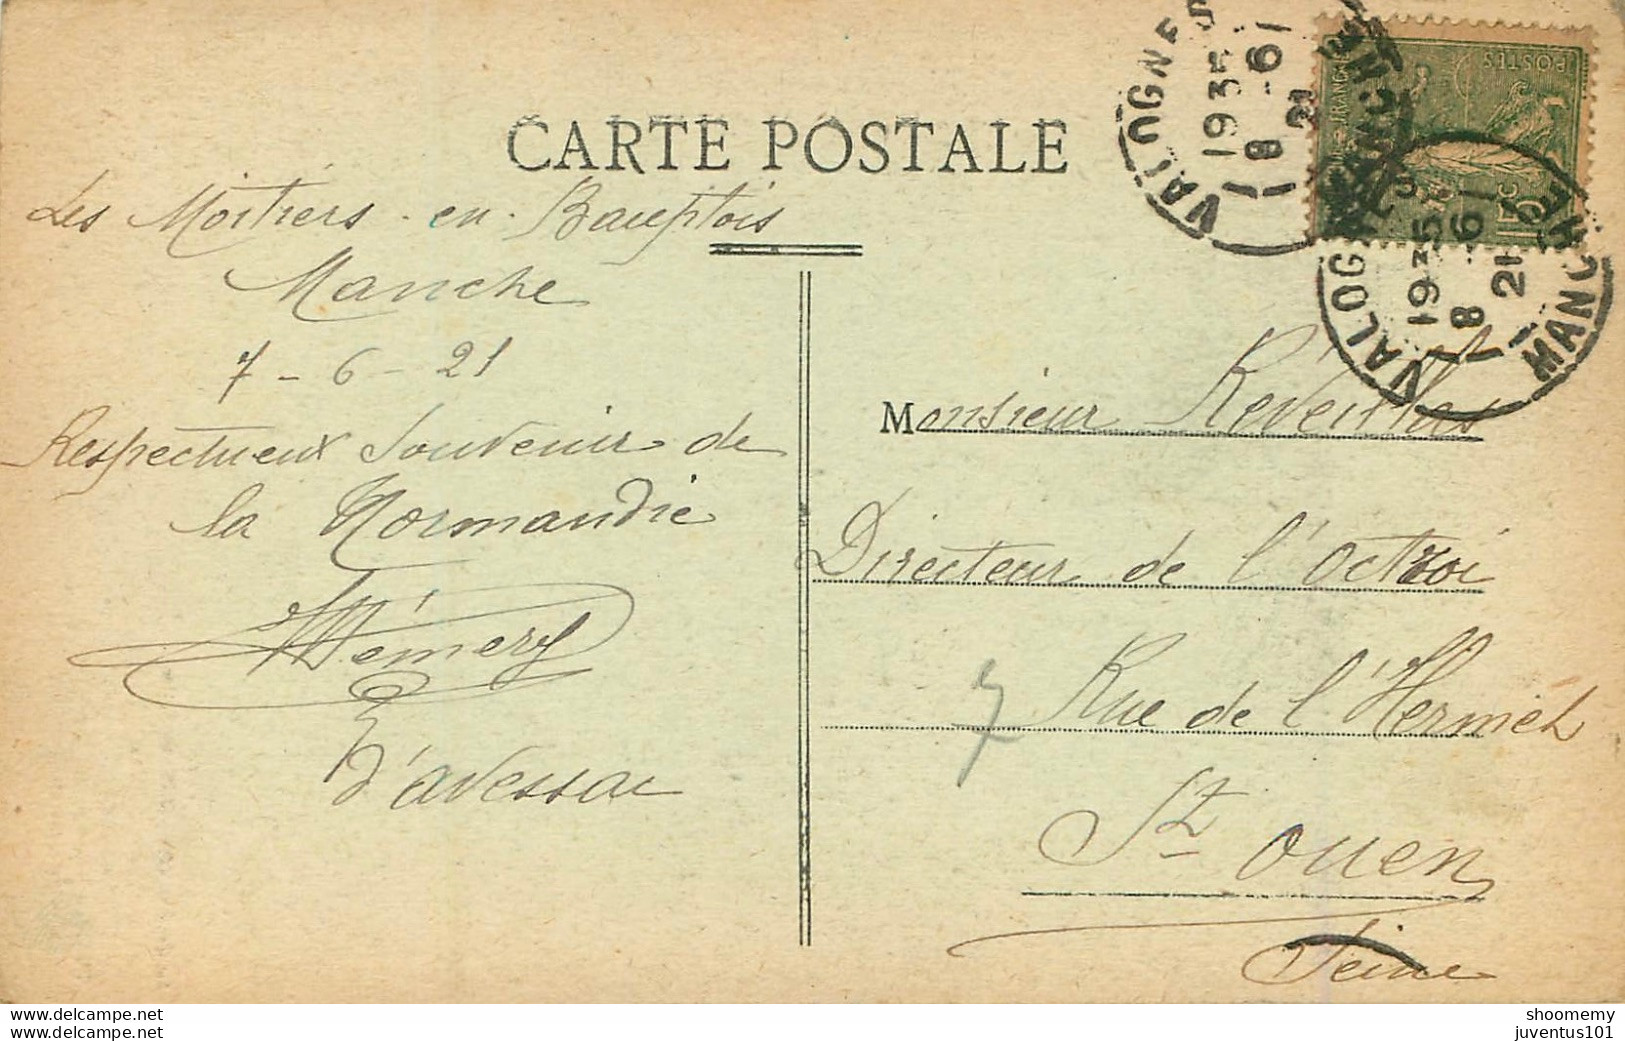 CARTE POSTALE
Les Moitiers-en-Bauptois
Manche
7-6-21
Respectueux Souvenir de
la Normandie
Hémery
d'avessac
Monsieur Réveillas
Directeur de l'Octroi
7 Rue de l'Hermet
St ouen
Seine
VALOGNES
MANCHE
1935
8 -6
21
VALOGNES
MANCHE
1935
8 -6
21
POSTES
15c
www.delcampe.net
www.delcampe.net
shoomemy
juventus101